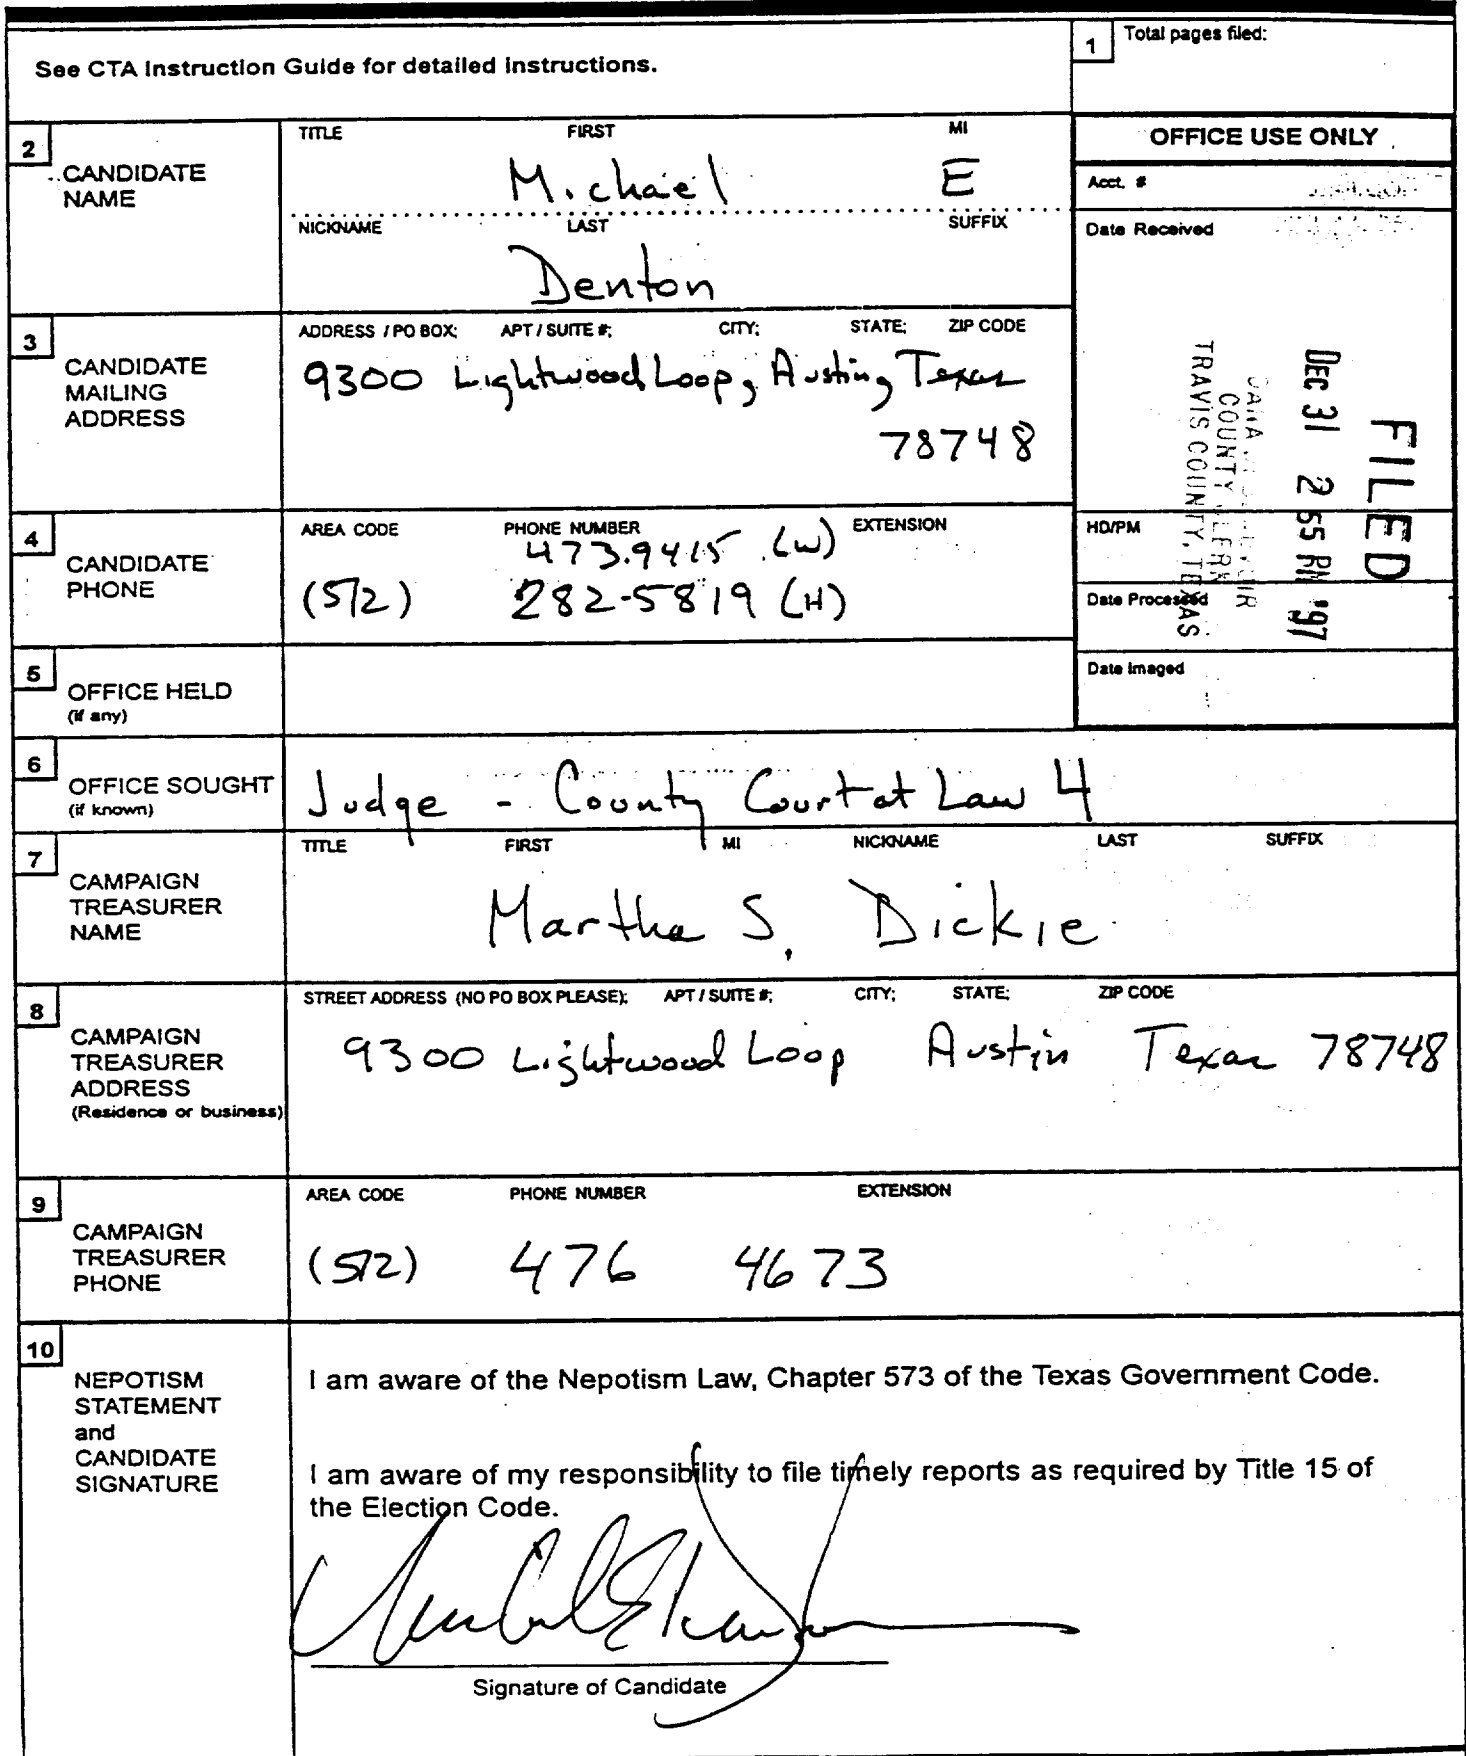 See CTA Instruction Guide for detailed instructions.
1 Total pages filed:
2 CANDIDATE NAME
TITLE FIRST MI
Michael E
NICKNAME LAST SUFFIX
Denton
OFFICE USE ONLY
Acct. #
Date Received
FILED
DEC 31 2 55 PM '97
COUNTY CLERK
TRAVIS COUNTY, TEXAS
HD/PM
Date Processed
Date Imaged
3 CANDIDATE MAILING ADDRESS
ADDRESS / PO BOX; APT / SUITE #; CITY; STATE; ZIP CODE
9300 Lightwood Loop, Austin, Texas
78748
4 CANDIDATE PHONE
AREA CODE PHONE NUMBER EXTENSION
473.9415 (W)
(512) 282-5819 (H)
5 OFFICE HELD
(if any)
6 OFFICE SOUGHT
(if known)
Judge - County Court at Law 4
7 CAMPAIGN TREASURER NAME
TITLE FIRST MI NICKNAME LAST SUFFIX
Martha S. Dickie
8 CAMPAIGN TREASURER ADDRESS
(Residence or business)
STREET ADDRESS (NO PO BOX PLEASE); APT / SUITE #; CITY; STATE; ZIP CODE
9300 Lightwood Loop Austin Texas 78748
9 CAMPAIGN TREASURER PHONE
AREA CODE PHONE NUMBER EXTENSION
(512) 476 4673
10 NEPOTISM STATEMENT and CANDIDATE SIGNATURE
I am aware of the Nepotism Law, Chapter 573 of the Texas Government Code.
I am aware of my responsibility to file timely reports as required by Title 15 of
the Election Code.
Signature of Candidate